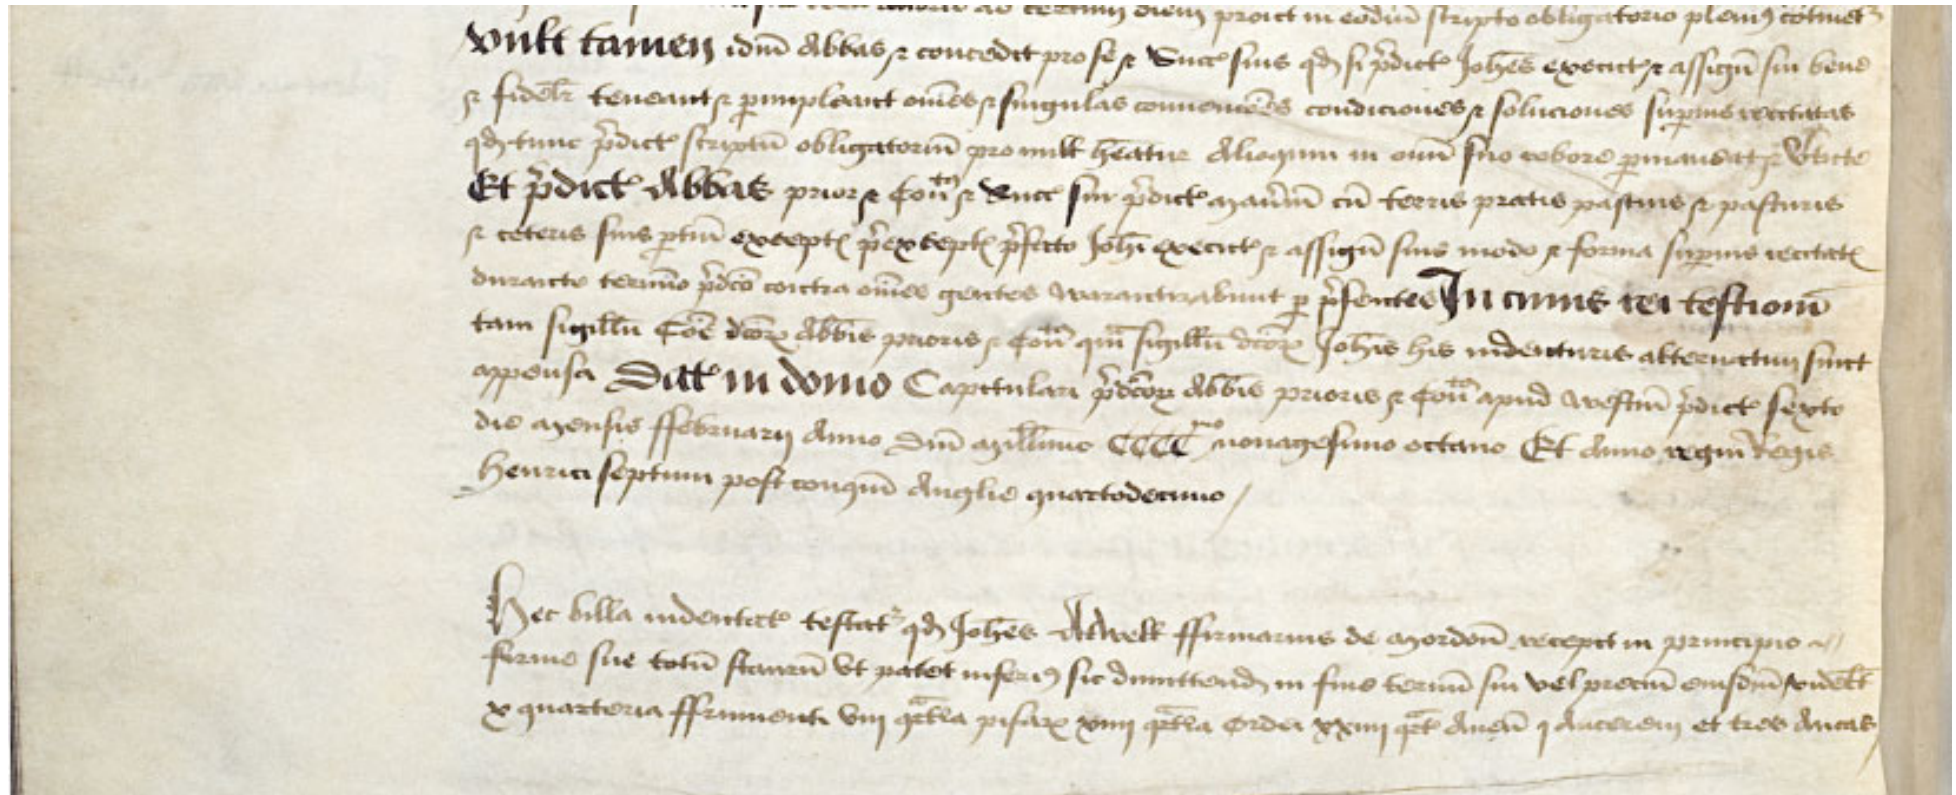 ad certum diem prout in eodm̄ scripto obligatorio pleniꝰ continetʳ
Vult tamen idm̄ Abbas ⁊ concedit pro se ⁊ Succ̄ suis qd̛ si p̄dict̄ Joh̄es execut̄ ⁊ assigñ sui bene
⁊ fidel̄r teneant ⁊ ꝑimpleant om̄es ⁊ singulas convenc̄oes condiciones ⁊ soluciones suꝑius recitatas
qd̛ tunc p̄dict̄ scriptū obligatoriū pro null̄ h̄eatur Alioquin in om̄i suo robore ꝑmaneat ⁊ v̄tute
Et p̄dict̄ Abbas prior ⁊ Conū ⁊ Succ̄ sui p̄dict̄ Man̄iū cū terris pratis pascuis ⁊ pasturis
⁊ ceteris suis ꝑtiñ except̄ p̄except̄ p̄fato Joh̄i execut̄ ⁊ assigñ suis modo ⁊ forma suꝑius recitat̄
durante termīo p̄dc̄o contra om̄es gentes Warantizabunt ꝑ p̄sentes In cuius rei testioniū
tam sigillū Cōe dc̄oꝝ Abb̄is prioris ⁊ Conū qm̄ sigillū dc̄oꝝ Joh̄is his indenturis alternatim sunt
appensa Dat̄ in domo Capitulari p̄dc̄oꝝ Abb̄is prioris ⁊ Conū apud Westm̄ p̄dict̄ sexto
die Mensis ffebruarij Anno Dn̄i Mill̄imo CCCCᵐᵒ nonagesimo octavo Et Anno regni Regis
Henrici septimi post conqm̄ Anglie quartodecimo /
Hec billa indentat̄ testatʳ qd̛ Joh̄es Atwell ffirmarius de Mordoñ recepit in principio
firme sue totū staurū vt patet inferiꝰ sic dimittend̛ in fine termī sui vel preciū eiusdm̄ videlt̄
x quarteria ffrumenti viij qrt̄ia pisaꝝ xiiij qrt̄ia Ordei xxiiij qrt̄ Aueñ j Ancerem et tres Aucas